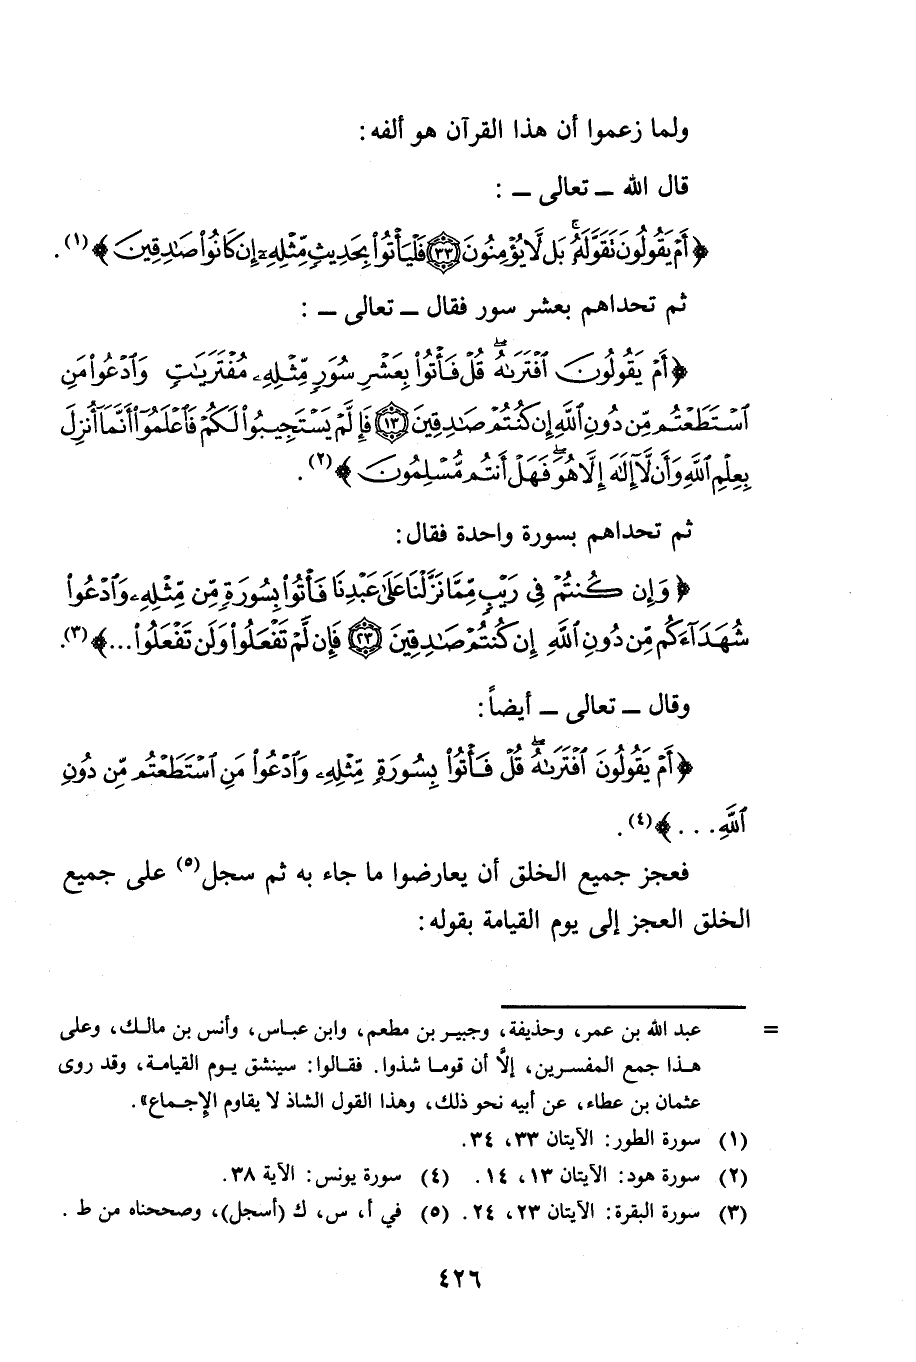 ولما زعموا أن هذا القرآن هو ألفه:
قال الله ــ تعالى ــ :
﴿أَمْ يَقُولُونَ تَقَوَّلَهُۥۚ بَل لَّا يُؤْمِنُونَ ٣٣ فَلْيَأْتُوا۟ بِحَدِيثٍ مِّثْلِهِۦٓ إِن كَانُوا۟ صَـٰدِقِينَ﴾(١).
ثم تحداهم بعشر سور فقال ــ تعالى ــ :
﴿أَمْ يَقُولُونَ ٱفْتَرَىٰهُۖ قُلْ فَأْتُوا۟ بِعَشْرِ سُوَرٍ مِّثْلِهِۦ مُفْتَرَيَـٰتٍ وَٱدْعُوا۟ مَنِ
ٱسْتَطَعْتُم مِّن دُونِ ٱللَّهِ إِن كُنتُمْ صَـٰدِقِينَ ١٣ فَإِلَّمْ يَسْتَجِيبُوا۟ لَكُمْ فَٱعْلَمُوٓا۟ أَنَّمَآ أُنزِلَ
بِعِلْمِ ٱللَّهِ وَأَن لَّآ إِلَـٰهَ إِلَّا هُوَۖ فَهَلْ أَنتُم مُّسْلِمُونَ﴾(٢).
ثم تحداهم بسورة واحدة فقال:
﴿وَإِن كُنتُمْ فِى رَيْبٍ مِّمَّا نَزَّلْنَا عَلَىٰ عَبْدِنَا فَأْتُوا۟ بِسُورَةٍ مِّن مِّثْلِهِۦ وَٱدْعُوا۟
شُهَدَآءَكُم مِّن دُونِ ٱللَّهِ إِن كُنتُمْ صَـٰدِقِينَ ٢٣ فَإِن لَّمْ تَفْعَلُوا۟ وَلَن تَفْعَلُوا۟...﴾(٣).
وقال ــ تعالى ــ أيضاً:
﴿أَمْ يَقُولُونَ ٱفْتَرَىٰهُۖ قُلْ فَأْتُوا۟ بِسُورَةٍ مِّثْلِهِۦ وَٱدْعُوا۟ مَنِ ٱسْتَطَعْتُم مِّن دُونِ
ٱللَّهِ...﴾(٤).
فعجز جميع الخلق أن يعارضوا ما جاء به ثم سجل(٥) على جميع
الخلق العجز إلى يوم القيامة بقوله:
= عبد الله بن عمر، وحذيفة، وجبير بن مطعم، وابن عباس، وأنس بن مالك، وعلى
هذا جمع المفسرين، إلَّا أن قوما شذوا. فقالوا: سينشق يوم القيامة، وقد روى
عثمان بن عطاء، عن أبيه نحو ذلك، وهذا القول الشاذ لا يقاوم الإجماع».
(١) سورة الطور: الآيتان ٣٣، ٣٤.
(٢) سورة هود: الآيتان ١٣، ١٤. (٤) سورة يونس: الآية ٣٨.
(٣) سورة البقرة: الآيتان ٢٣، ٢٤. (٥) في أ، س، ك (أسجل)، وصححناه من ط .
٤٢٦